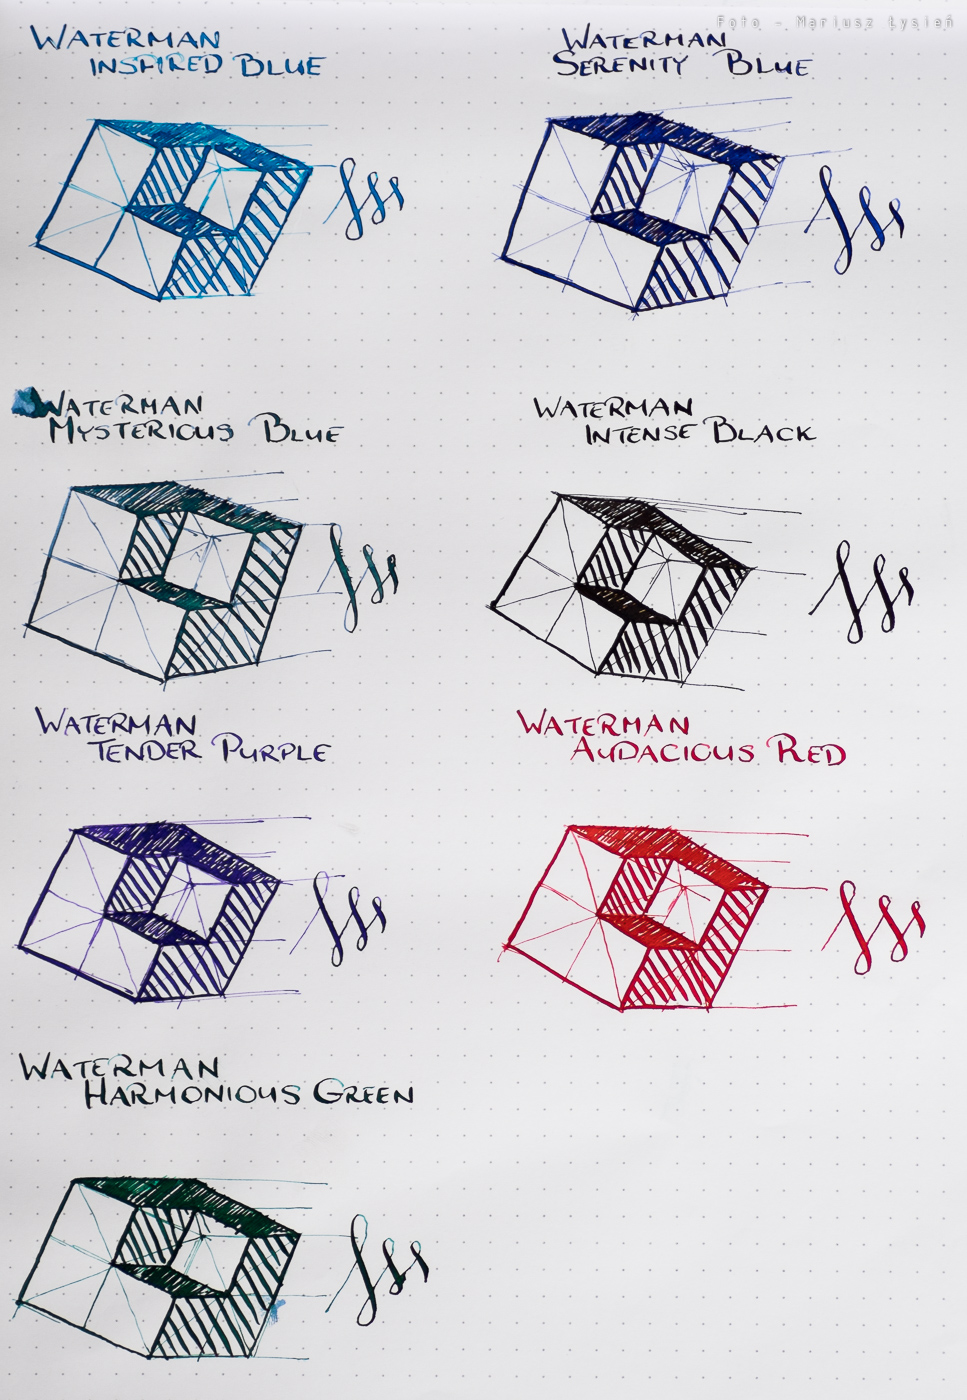 Foto - Mariusz Łysień
WATERMAN
INSPIRED BLUE
WATERMAN
SERENITY BLUE
WATERMAN
MYSTERIOUS BLUE
WATERMAN
INTENSE BLACK
WATERMAN
TENDER PURPLE
WATERMAN
AUDACIOUS RED
WATERMAN
HARMONIOUS GREEN